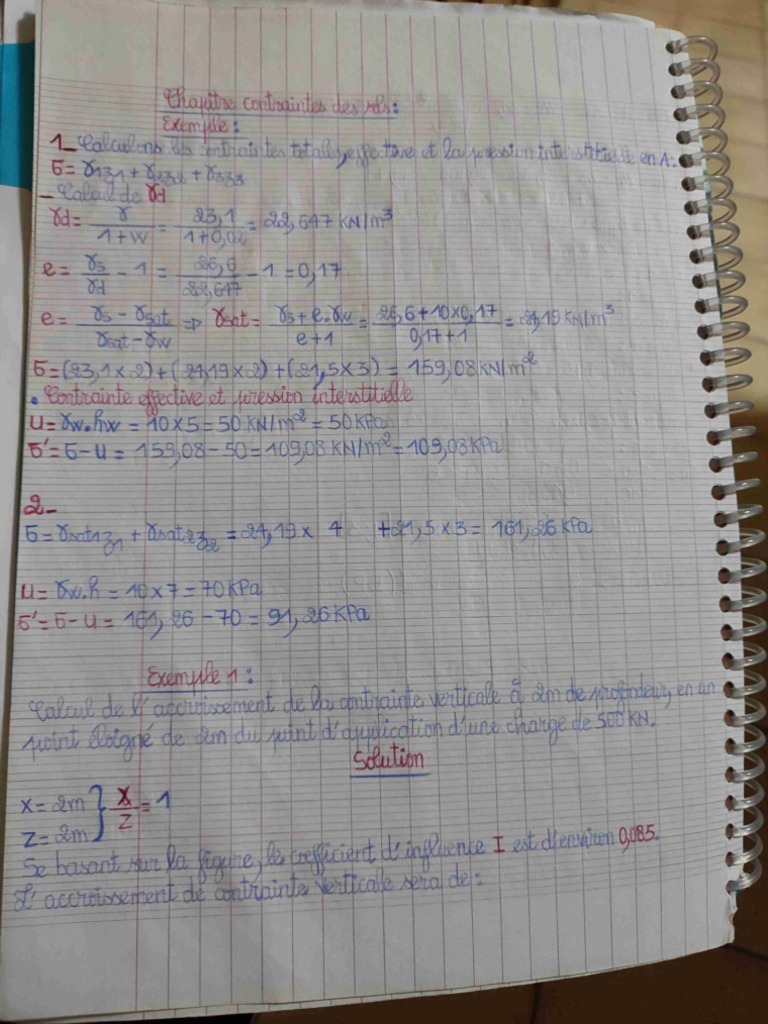 Chapitre contraintes des sols:
Exemple:
1_ Calculons les contraintes totales, effective et la pression interstitielle en A:
σ = γ1z1 + γ2z2 + γ3z3
_ Calcul de γd
γd = γ / 1+w = 23,1 / 1+0,02 = 22,647 KN/m³
e = γs / γd - 1 = 26,6 / 22,647 - 1 = 0,17
e = γs - γsat / γsat - γw ⇒ γsat = γs + e.γw / e+1 = 26,6+10×0,17 / 0,17+1 = 24,19 KN/m³
σ = (23,1×2)+(24,19×2)+(21,5×3) = 159,08 KN/m²
• Contrainte effective et pression interstitielle
U = γw.hw = 10×5 = 50 KN/m² = 50 KPa
σ' = σ - U = 159,08 - 50 = 109,08 KN/m² = 109,08 KPa
2_
σ = γsat1z1 + γsat2z2 = 24,19 × 4 + 21,5 × 3 = 161,26 KPa
U = γw.h = 10×7 = 70 KPa
σ' = σ - U = 161,26 - 70 = 91,26 KPa
Exemple 1:
Calcul de l'accroissement de la contrainte verticale à 2m de profondeur, en un
point éloigné de 2m du point d'application d'une charge de 500 KN.
Solution
x = 2m
z = 2m } X / Z = 1
Se basant sur la figure, le coefficient d'influence I est d'environ 0,085.
L'accroissement de contrainte verticale sera de: